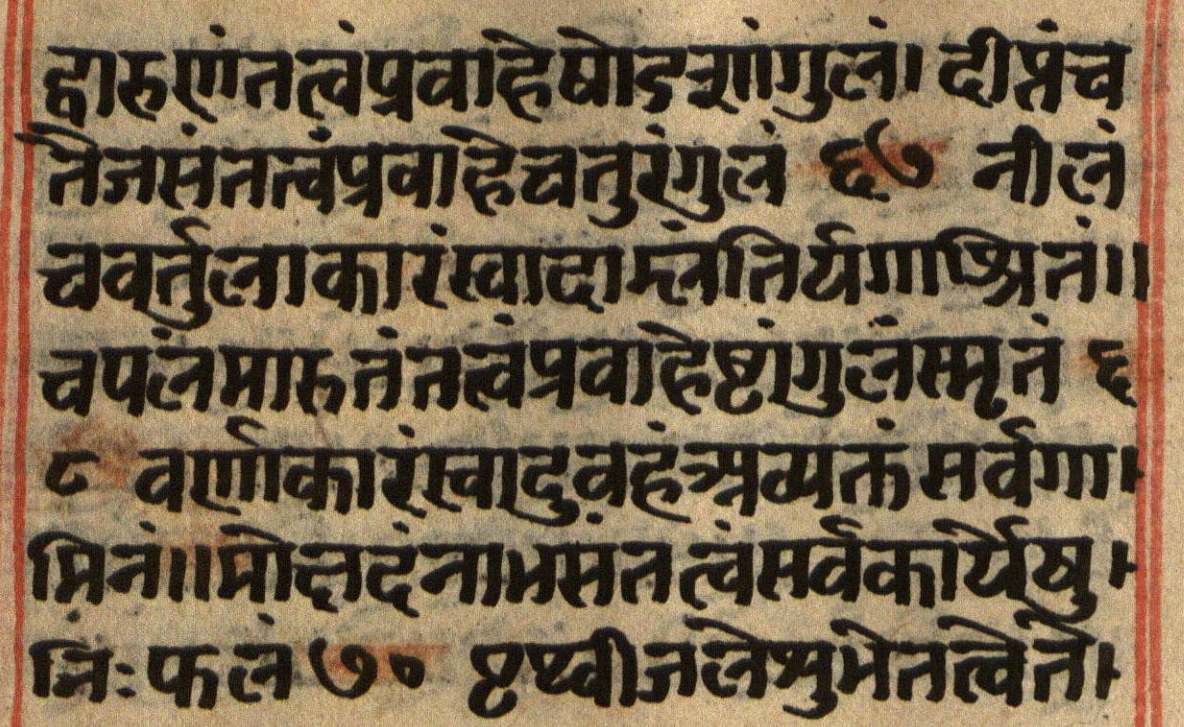 द्वारुणंतत्वंप्रवाहेषोडशांगुलं। दीप्तंच
तैजसंतत्वंप्रवाहेचतुरंगुलं ६७ नीलं
चवर्तुलाकारंस्वादाम्लंतिर्यगाश्रितं॥
चपलंमारुतंतत्वंप्रवाहेष्टांगुलंस्मृतं ६
८ वर्णाकारंस्वादुवहंअव्यक्तंसर्वगा।
मिनं॥मोक्षदंनाभसंतत्वंसर्वकार्येषु।
निःफलं ७० पृथ्वीजलेशुभेतत्वेते।